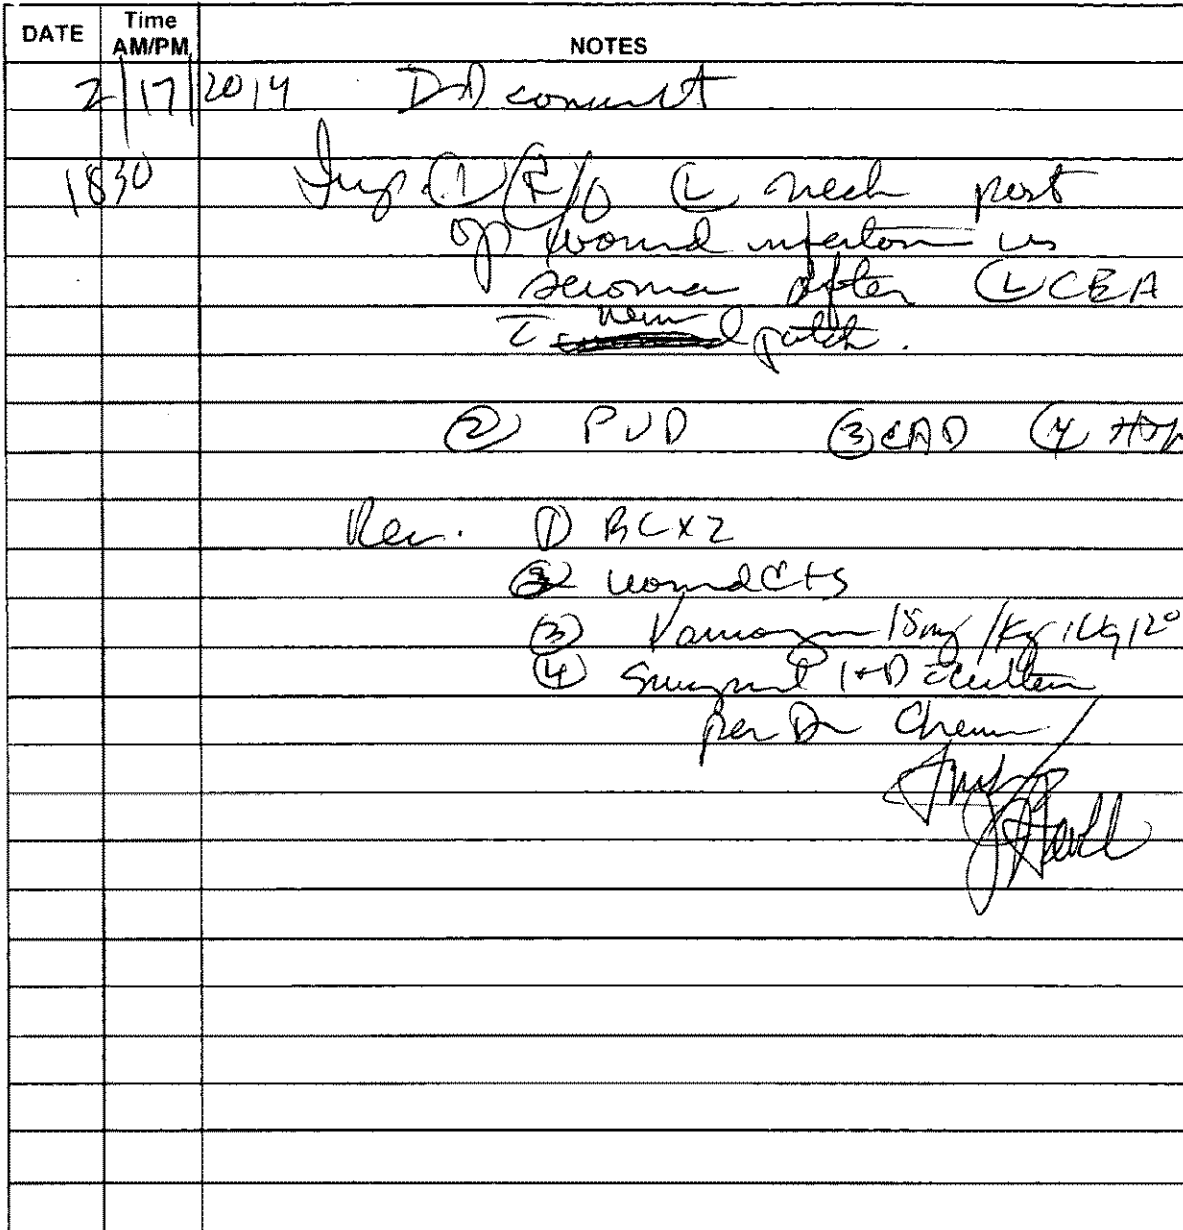 DATE Time AM/PM NOTES
2/17/2014 ID consult
1830 Imp. ① R/O Ⓛ neck post
op wound infection vs
seroma after Ⓛ CEA
c̄ vein patch.
② PVD ③ CAD ④
Rec. ① BCx2
② wound C+S
③ Vancomycin 15mg/kg IV q 12°
④ Surgical I+D c̄ culture
per Dr